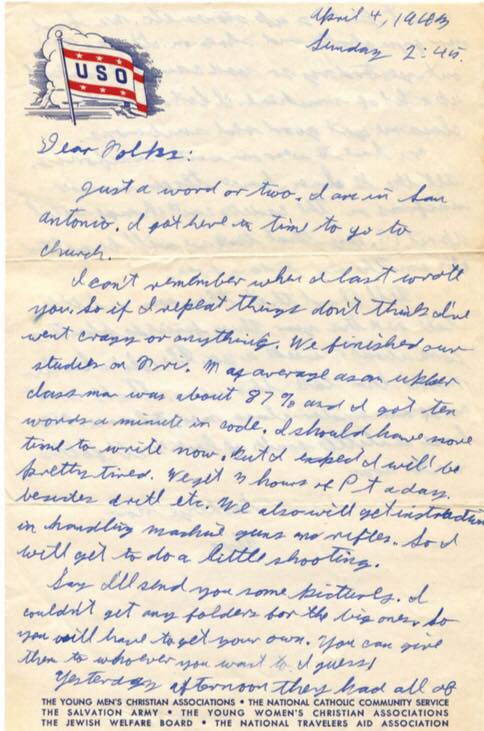 April 4, 1943
Sunday 2:45.
USO
Dear Folks:
Just a word or two. I am in San
Antonio. I got here in time to go to
church.
I can't remember when I last wrote
you. So if I repeat things don't think I've
went crazy or anything. We finished our
studies on Fri. My average as an upper
classman was about 87% and I got ten
words a minute in code. I should have more
time to write now. But I expect I will be
pretty tired. We get hours of P t a day.
besides drill etc. We also will get instruction
in handling machine guns and rifles. So I
will get to do a little shooting.
Say I'll send you some pictures. I
couldn't get any folders for the big ones. So
you will have to get your own. You can give
them to whoever you want to I guess.
Yesterday afternoon they had all of
THE YOUNG MEN'S CHRISTIAN ASSOCIATIONS • THE NATIONAL CATHOLIC COMMUNITY SERVICE
THE SALVATION ARMY • THE YOUNG WOMEN'S CHRISTIAN ASSOCIATIONS
THE JEWISH WELFARE BOARD • THE NATIONAL TRAVELERS AID ASSOCIATION